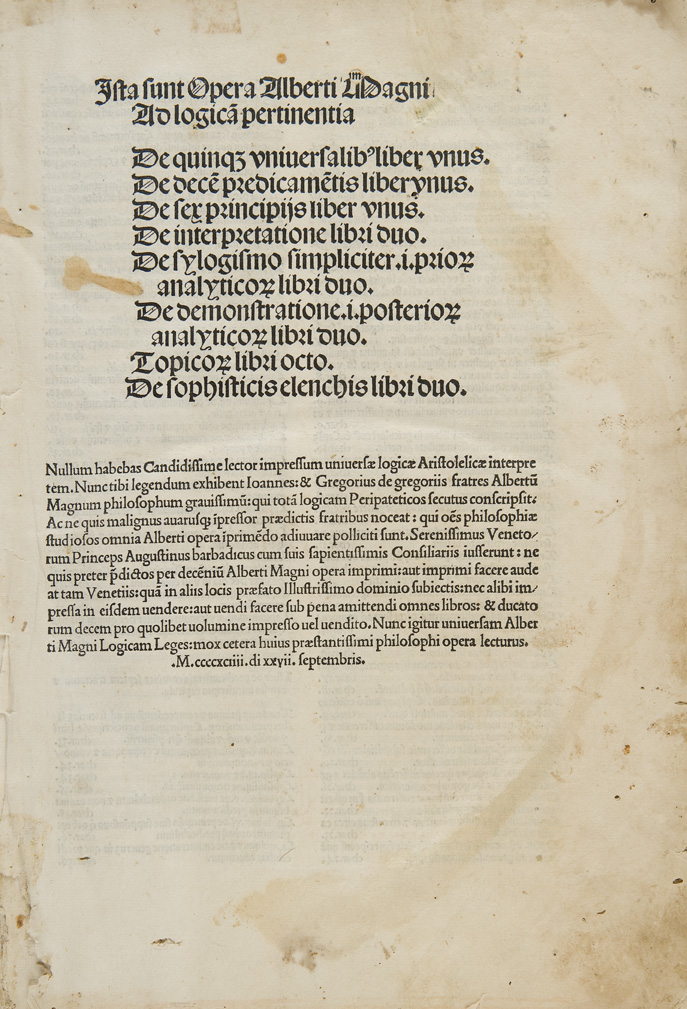 Ista sunt Opera Alberti Magni
Ad logicā pertinentia
De quinqꝫ vniuersalibꝰ liber vnus.
De decē predicamētis liber vnus.
De sex principijs liber vnus.
De interpretatione libri duo.
De sylogismo simpliciter.i.prioꝝ
analyticoꝝ libri duo.
De demonstratione.i.posterioꝝ
analyticoꝝ libri duo.
Topicoꝝ libri octo.
De sophisticis elenchis libri duo.
Nullum habebas Candidissime lector impressum uniuersæ logicæ Aristolelicæ interpre
tem. Nunc tibi legendum exhibent Ioannes: & Gregorius de gregoriis fratres Albertū
Magnum philosophum grauissimū: qui totā logicam Peripateticos secutus conscripsit:
Ac ne quis malignus auarusqꝫ īpressor prædictis fratribus noceat: qui oēs philosophiæ
studiosos omnia Alberti opera īprimēdo adiuuare polliciti sunt. Serenissimus Veneto/
rum Princeps Augustinus barbadicus cum suis sapientissimis Consiliariis iusserunt: ne
quis preter p̄dictos per decēniū Alberti Magni opera imprimi: aut imprimi facere aude
at tam Venetiis: quā in aliis locis præfato Illustrissimo dominio subiectis: nec alibi im/
pressa in eisdem uendere: aut uendi facere sub pena amittendi omnes libros: & ducato
rum decem pro quolibet uolumine impresso uel uendito. Nunc igitur uniuersam Alber
ti Magni Logicam Leges: mox cetera huius præstantissimi philosophi opera lecturus.
.M.ccccxciiii. di xxvii. septembris.